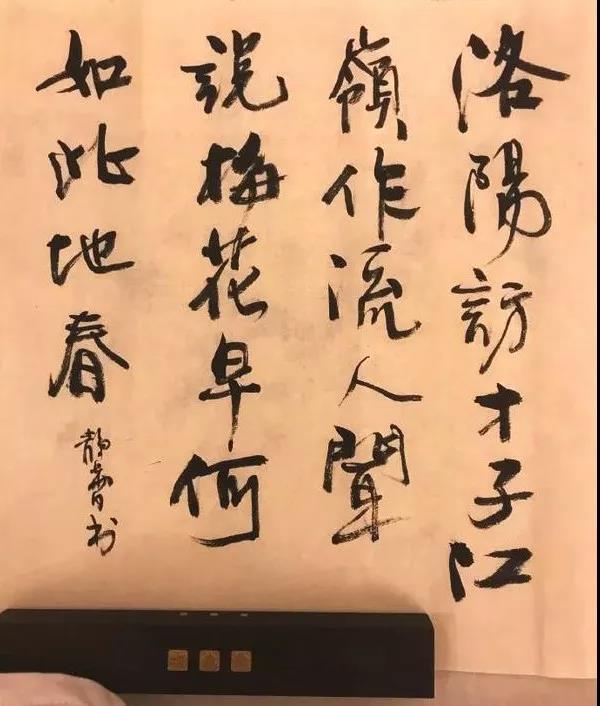 洛陽訪才子江
嶺作流人聞
説梅花早何
如此地春
静 书